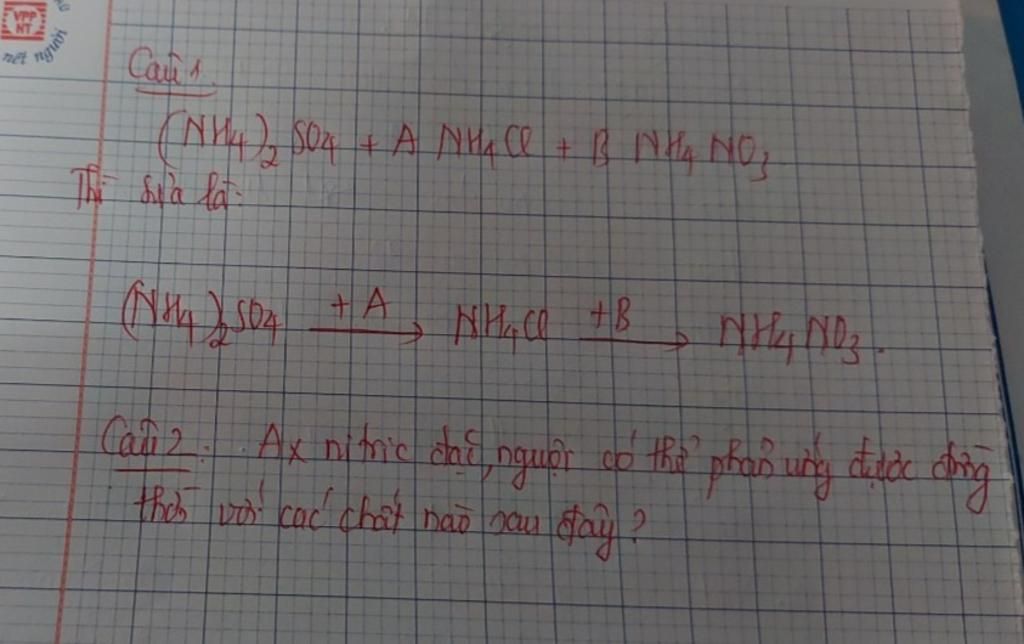 VPP
NT
nét người
Câu 1
(NH4)2 SO4 + A NH4Cl + B NH4NO3
Thì sửa là:
(NH4)2SO4 +A → NH4Cl +B → NH4NO3.
Câu 2: Ax nitric đặc, nguội có thể phản ứng được đồng
thời với các chất nào sau đây?